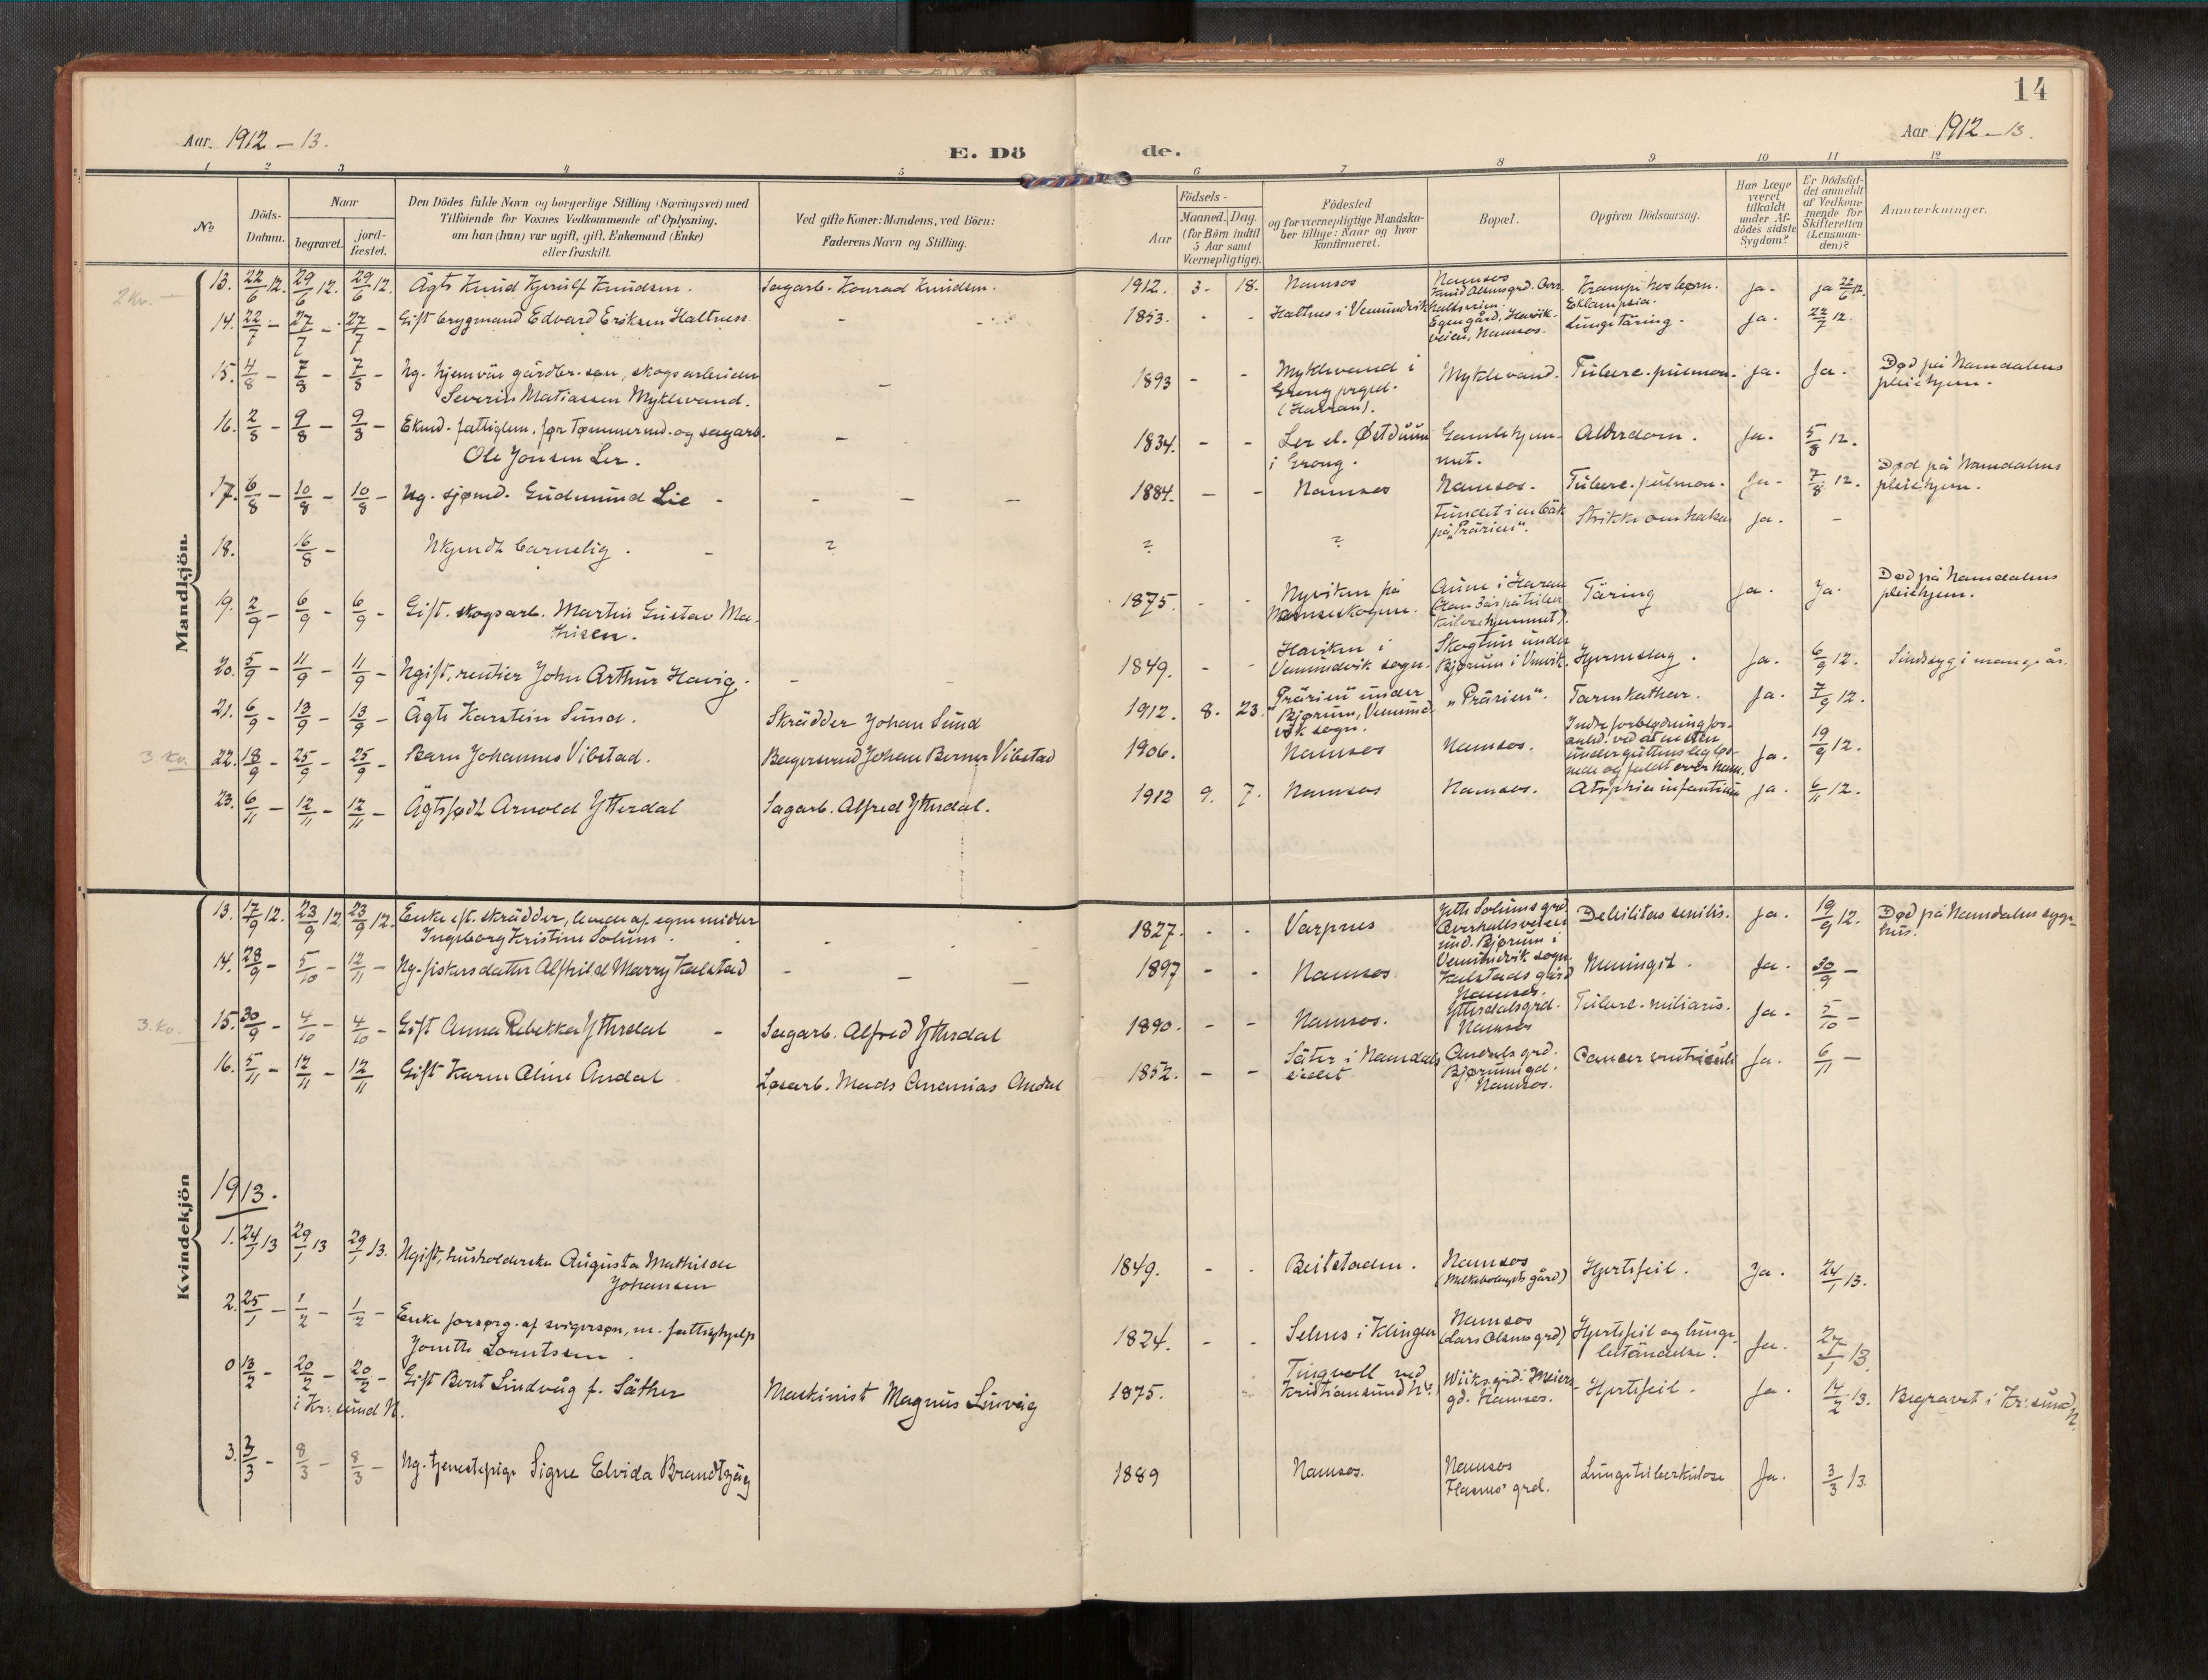 14
Aar 1912 – 13.
E. Dö de.
Aar 1912 – 13.
1 2 3 4 5 6 7 8 9 10 11 12
No
Döds-Datum.
Naar
begravet.
jord-fæstet.
Den Dödes fulde Navn og borgerlige Stilling (Næringsvei) med
Tilföiende for Voxnes Vedkommende af Oplysning,
om han (hun) var ugift, gift, Enkemand (Enke)
eller fraskilt.
Ved gifte Koner: Mandens, ved Börn:
Faderens Navn og Stilling.
Födsels-
Aar
Maaned. Dag.
(for Börn indtil
5 Aar samt
Værnepligtige).
Födested
og for værnepligtige Mandska-
ber tillige: Naar og hvor
konfirmeret.
Bopæl.
Opgiven Dödsaarsag.
Har Læge
været
tilkaldt
under Af-
dödes sidste
Sygdom?
Er Dödsfal-
det anmeldt
af Vedkom-
mende for
Skifteretten
(Lensman-
den)?
Anmærkninger.
Mandkjön.
2 Kv. –
13. 22/6 12. 29/6 12. 29/6 12. Ägte Knud Kjerulf Knudsen. Sagarb. Konrad Knudsen. 1912. 3. 18. Namsos Namsos Krampe hos børn. Eklampsia. ja. ja 22/6 12.
14. 22/7 – 27/7 – 27/7 – Gift brygmand Edvard Eriksen Haltness. – – 1853. - - Haltnes i Vemundvik Egen gård, Havik-veien, Namsos. Lungetäring. ja. 22/7 12.
15. 4/8 – 7/8 – 7/8 – Ug. hjemvär. gårdbr. søn, skogsarbeider
Severin Matiassen Myklevand. – 1893 - - Myklevand i
Grong prgjld.
(Harran). Myklevand. Tuberc. pulmon. ja. Ja. Død på Namdalens
pleiehjem.
16. 2/8 – 9/8 – 9/8 – Ekmd. fattiglem. før tømmermd. og sagarb.
Ole Jonsen Ler. – 1834. - - Ler el. Østduun
i Grong. Gamlehjem-
met. Alderdom. Ja. 5/8 12.
17. 6/8 – 10/8 – 10/8 – Ug. sjømd. Gudmund Lie - - – – 1884. – - Namsos Namsos. Tuberc. pulmon. Ja- 7/8 12. Død på Namdalens
pleiehjem.
18. 16/8 – Ukjendt barnelig. – ? ? ? Fundet i en bäk
på „Prärien“. Strikke om halsen ja. –
19. 2/9 – 6/9 – 6/9 – Gift. skogsarb. Martin Gustav Ma-
thisen. 1875. - - Nyviken på
Namsskogan. Aune i Haran Täring ja. Ja. Død på Namdalens
pleiehjem.
20. 5/9 – 11/9 – 11/9 – Ugift, rentier John Arthur Havig. – – 1849. - - Haviken i
Vemundvik sogn. Skogtun under
Bjørum i Vmvik. Hjerneslag. Ja. 6/9 12. Sindssyg i mange år.
21. 6/9 – 13/9 – 13/9 – Ägte Karstein Sund. Skrädder Johan Sund 1912. 8. 23. „Prärien“ under
Bjørum, Vemund-
vik sogn. „Prärien“. Tarmkathar. Ja. 7/9 12.
3. Kv. 22. 18/9 – 25/9 – 25/9 – Barn Johannes Vibstad. Bagersvend Johan Berner Vibstad 1906. Namsos Namsos. Indre forblødning for-
ja. 19/9 12.
23. 6/11 – 12/11 – 12/11 – Ägtefødt Arnold Ytterdal Sagarb. Alfred Ytterdal. 1912 9. 7. Namsos Namsos. Atrophia infantium ja. 6/11 12.
Kvindekjön
13. 17/9 12. 23/9 12. 23/9 12. Enke eft. skrädder, levede af egne midler
Ingeborg Kristine Solum. - - - 1827. - - Varpnes Jette Solums grd.
Overhallsveien
und. Bjørum i
Vemundvik sogn. Debilitas senilis. Ja. 19/9 12. Død på Namdalens syge-
hus.
14. 28/9 – 5/10 – 12/11 – Ug. fiskersdatter Alfhild Marry Kalstad - – – 1897 - - Namsos. Kalstads gård
Namsos. Meningit. Ja. 30/9 –
3. Kv. 15. 30/9 – 4/10 – 4/10 – Gift Anna Rebekka Ytterdal - Sagarb. Alfred Ytterdal 1890. - - Namsos. Ytterdalsgrd.
Namsos Tuberc. miliaris. Ja. 5/10 –
16. 5/11 – 12/11 – 12/11 Gift Karen Aline Andal Løsarb. Mads Ananias Andal 1852. – – Säter i Namdals
eidet Andals grd.
Bjørumgd.
Namsos. Cancer ventriculi Ja. 6/11 –
1913.
1. 24/1 13 29/1 13 29/1 13. Ugift, husholderske Augusta Mathilde
Johansen 1849. - - Beitstaden. Namsos Hjertefeil. Ja. 24/1 13.
2. 25/1 – 1/2 – 1/2 – Enke forsørg. af svigersøn, m. fattighjelp
Jonette Lorntssen. 1824. - - Selnes i Klingen Namsos
(Lars Olsens grd) Hjertefeil og lunge-
betändelse. Ja. 27/1 13.
0 13/2 – 20/2 – 20/2 – Gift Berit Lindvåg f. Säther Maskinist Magnus Linvåg 1875. - Tingvoll ved
Kristiansund N. Wiiks grd. Meieri-
gd. Namsos. Hjertefeil. Ja. 14/2 13. Begravet i Kr:sund N.
i Kr: sund N.
3. 3/3 – 8/3 – 8/3 – Ug. tjenestepige Signe Elvida Brandtzäg 1889 Namsos. Namsos
grd. Lungetuberkulose Ja. 3/3 13.